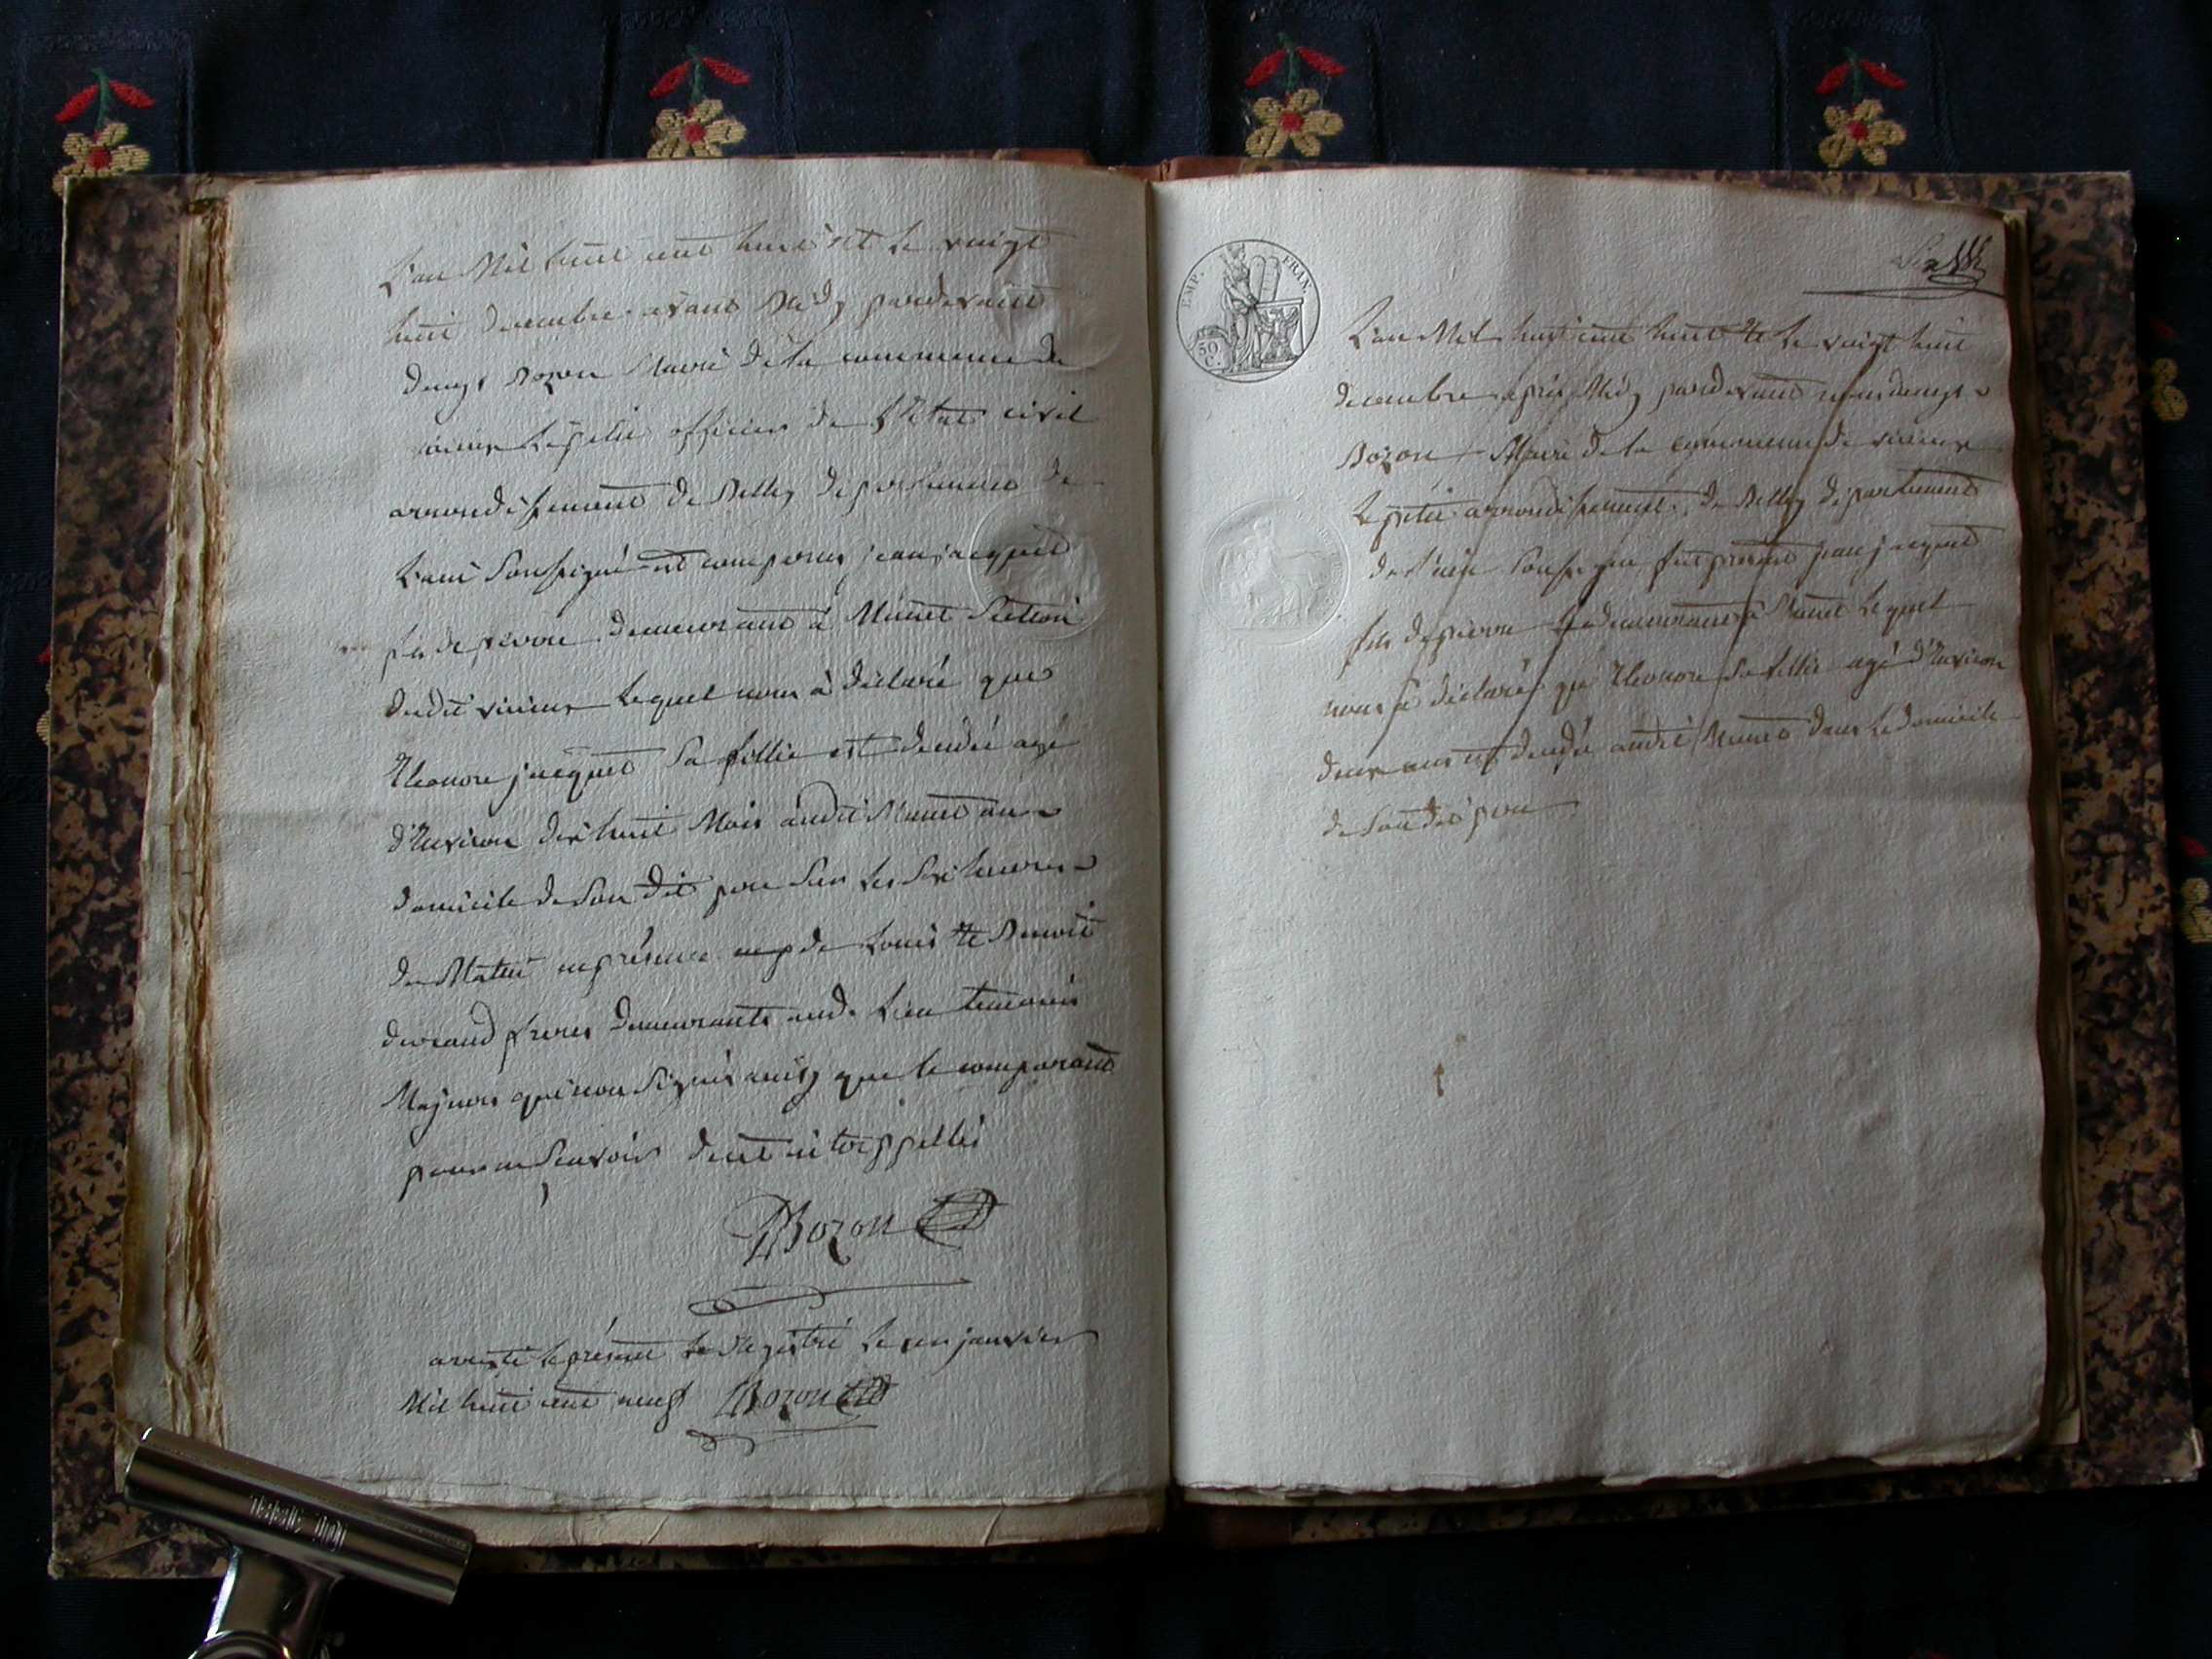 L'an Mil huit cent huit et le vingt
huit decembre avant Midy pardevant
denys Bozon Maire de la commune de
virieux le petit officier de l'Etat civil
arrondissement de Belley departement de
l'ain soussigné est comparus jean jacquet
fils de pierre demeurant à Munet Section
dudit virieux lequel nous à déclaré que
Eleonore jacquet sa fillie est décédée agé
d'Environ dix huit Mois audit Munet au
domicile de son dit pere sur les six heures
du Matin en présence de Louis et Benoit
freres demeurants aud. lieu temoins
Majeurs qui non signés ainsy que le comparant
pour ne scavoir de ce interppellés
Bozon
arresté le présent Registre le un janvier
Mil huit cent neuf Bozon
EMP. FRAN.
50 C.
L'an Mil huit cent huit et le vingt huit
decembre après Midy pardevant nous denys
Bozon Maire de la commune de virieux
le petit arrondissement de Belley département
de l'ain soussigné fut présent jean jacquet
fils de pierre demeurant à Munet lequel
nous a déclaré que Eleonore sa fillie agé d'Environ
deux ans est décédée audit Munet dans le domicile
de son dit pere